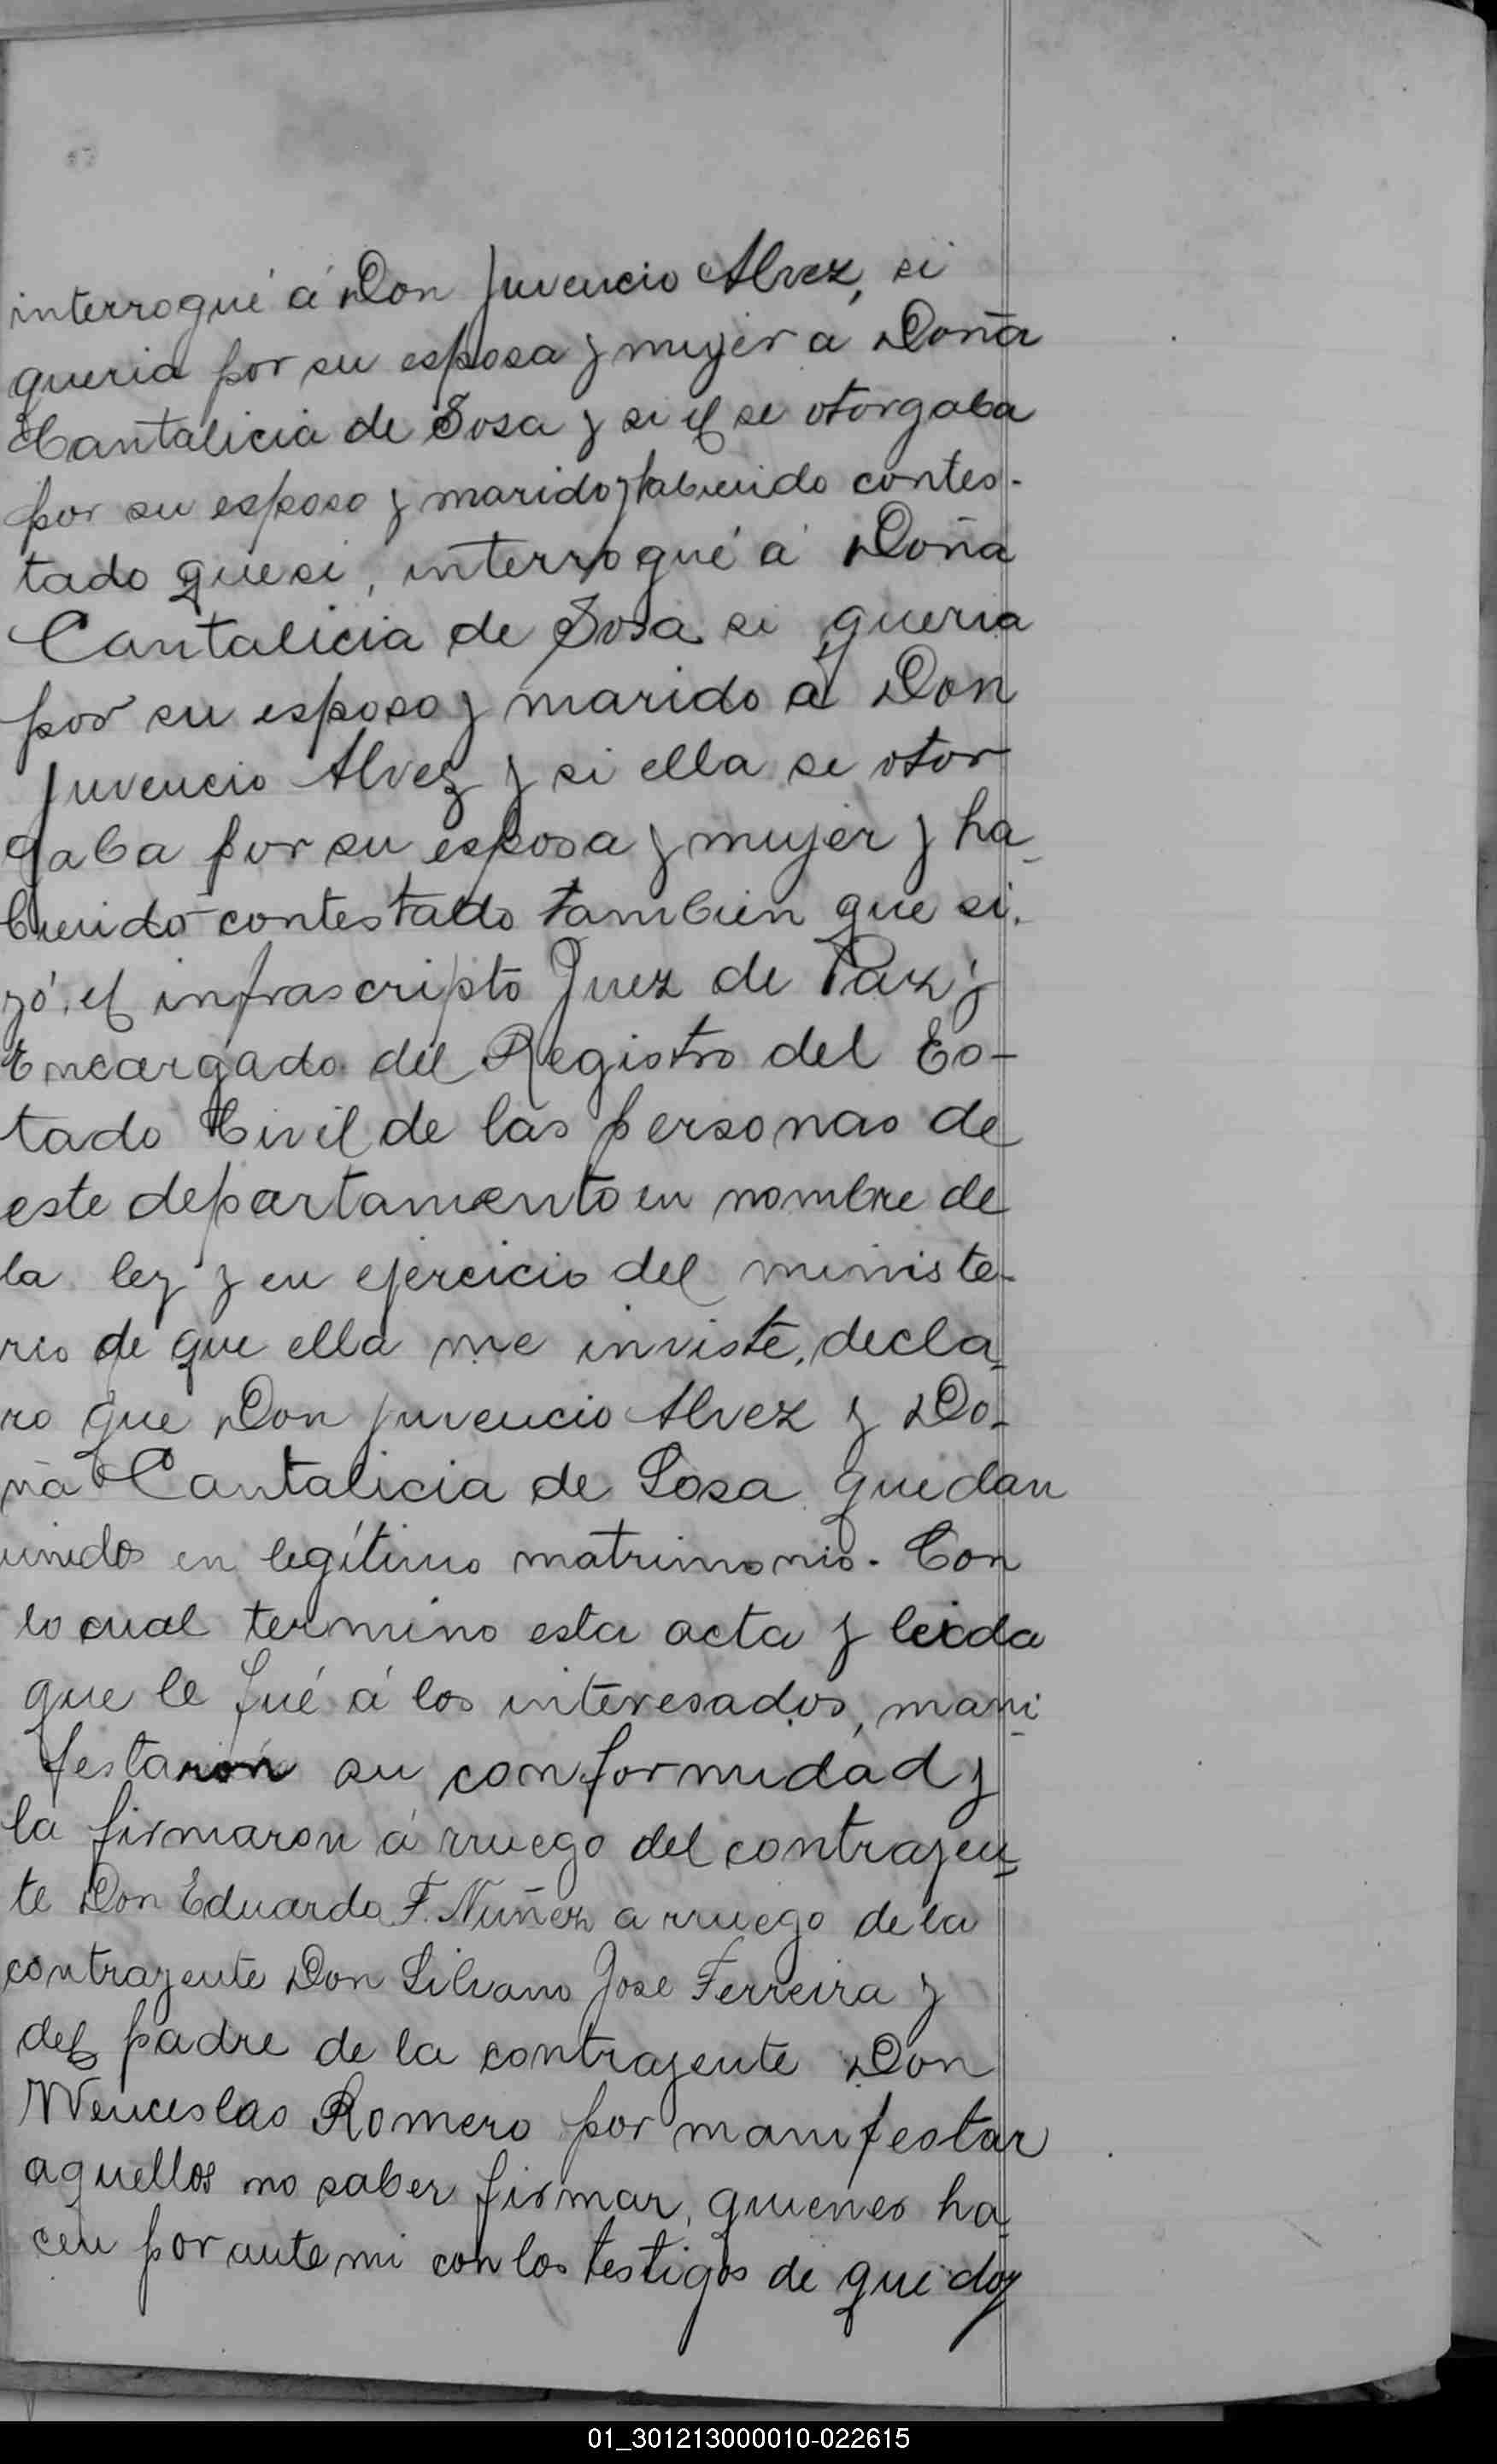 interrogué á Don Juvencio Alvez, si
queria por su esposa y mujer a Doña
Cantalicia de Sosa y si el se otorgaba
por su esposo y marido y habiendo contes-
tado que si, interrogué á Doña
Cantalicia de Sosa si queria
por su esposo y marido á Don
Juvencio Alvez y si ella se otor
gaba por su esposa y mujer y ha-
biendo contestado tambien que si.
yó, el infrascripto Juez de Paz y
Encargado del Registro del Es-
tado Civil de las personas de
este departamento en nombre de
la ley y en ejercicio del ministe-
rio de que ella me inviste, decla-
ro que Don Juvencio Alvez y Do-
ña Cantalicia de Sosa quedan
unidos en legítimo matrimonio. Con
lo cual termino esta acta y leida
que le fué á los interesados, mani-
festaron su conformidad y
la firmaron á rruego del contrayen-
te Don Eduardo F. Nuñez a rruego de la
contrayente Don Silvano Jose Ferreira y
del padre de la contrayente Don
Wenceslao Romero por manifestar
aquellos no saber firmar, quienes ha-
cen por ante mi con los testigos de que doy
01_301213000010-022615